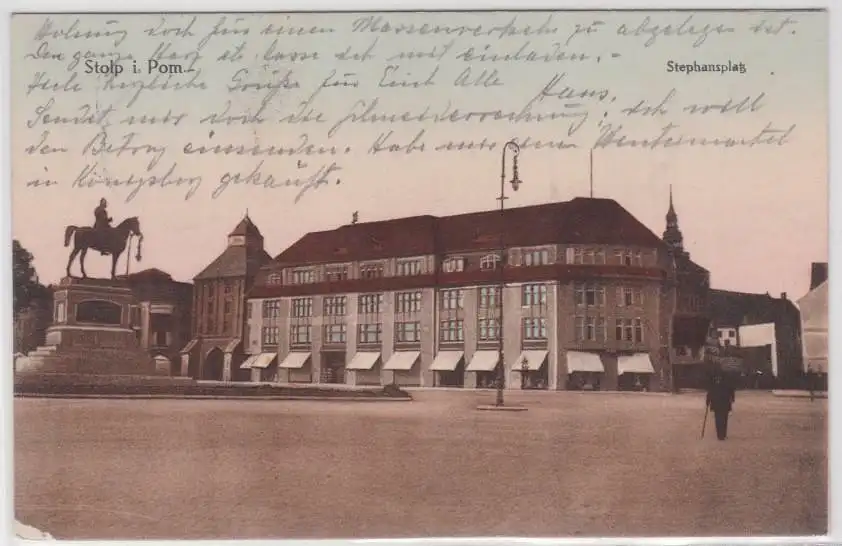 Wohnung doch für einen Massenverkehr zu abgelegen ist.
Den ganze Herz etc lasse ich mit einladen. -
Stolp i. Pom.
Stephansplatz
Viele herzliche Grüße für Euch Alle Hans.
Sendet mir doch die Filmentwerrechnung; ich will
den Betrag einsenden. Habe mir den Wintermantel
in Königsberg gekauft.